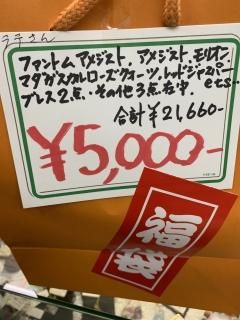 ラテさん
ファントムアメジスト、アメジスト モリオン、
マダガスカルローズクォーツ、レッドジャスパー
ブレス2点・その他3点在中、ets‥
合計¥21,660-
¥5,000-
福袋